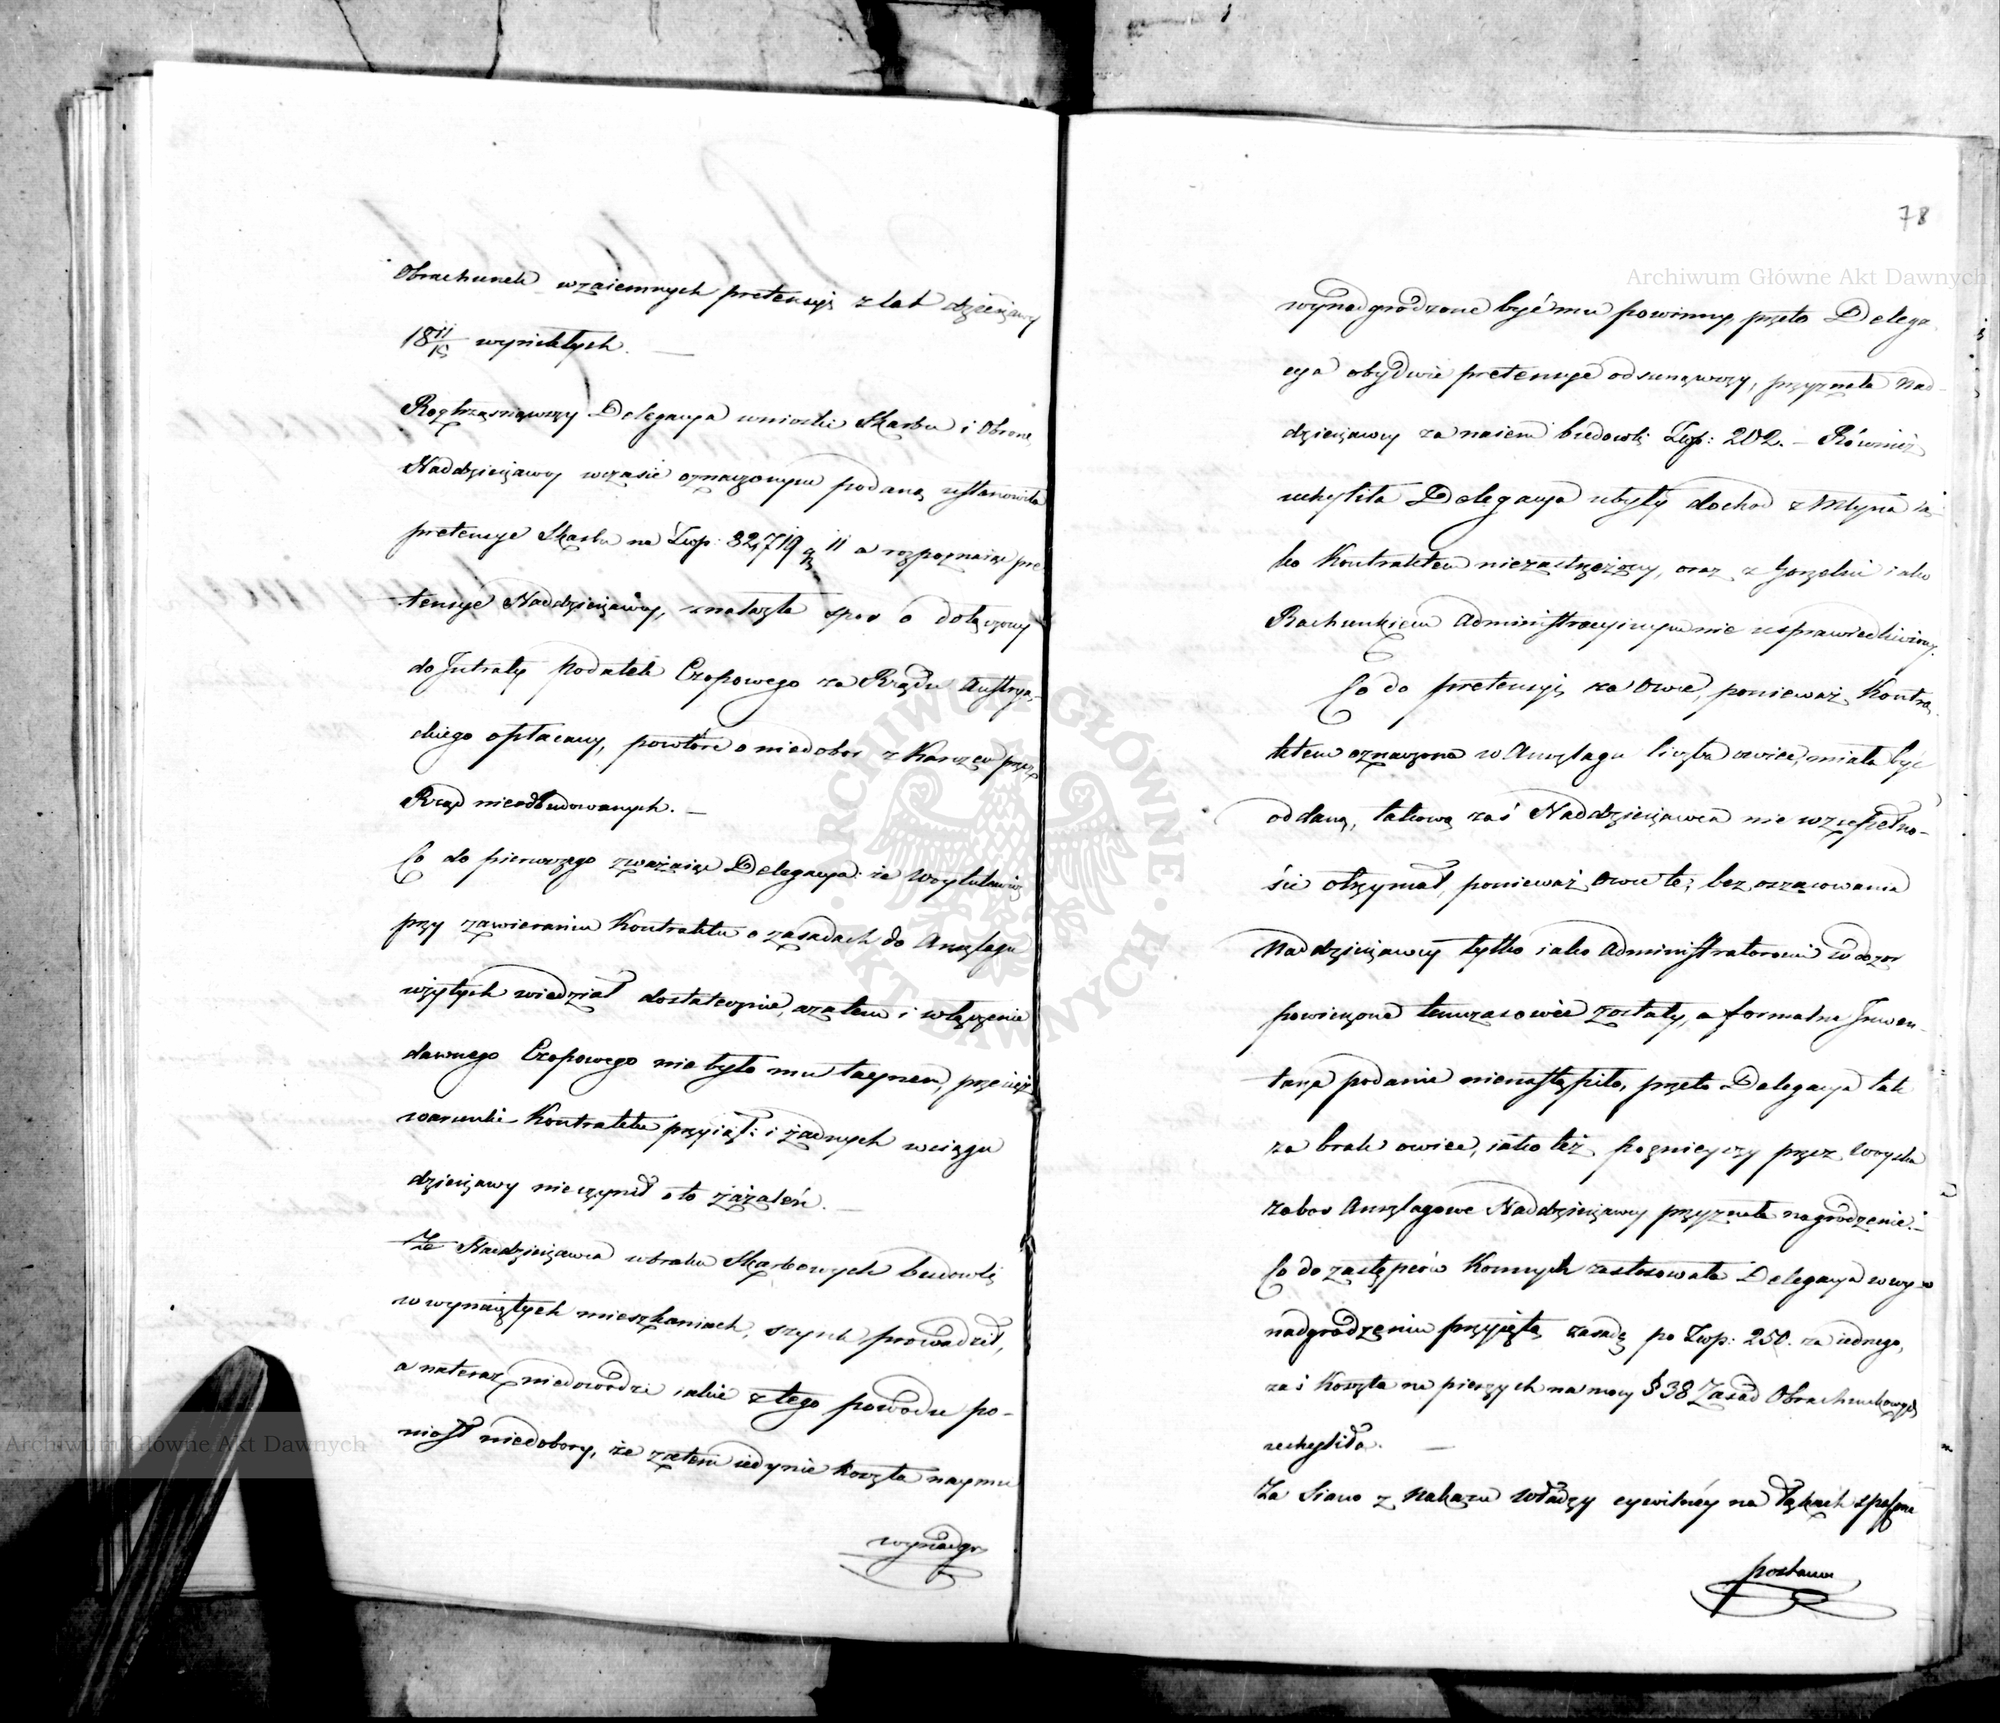 Obrachunek wzaiemnych pretensyi z lat dzierżawy
18 11/15 wynikłych. —
Roztrząsnąwszy Delegacya wnioski Skarbu i Obronę
Naddzierżawcy wczasie oznaczonym podaną ustanowiła
pretensye Skarbu na Złtp: 32,719 g 11 a rozpoznaiąc pre
tensye Naddzierżawcy, znalazła spor o dołączony
do Intraty podatek Czopowego za Rządu Austrya-
ckiego opłacany, powtóre o niedobor z Karczem przez
Rząd nieodbudowanych. —
Co do pierwszego zważaiąc Delegacya: że
przy zawieraniu Kontraktu o zasadach do Anszlagu
wziętych wiedział dostatecznie, azatem i włączenie
dawnego Czopowego nie było mu taynem, przecież
warunki Kontraktu przyiął: i żadnych wciągu
dzierżawy nieczynił o to zażaleń. —
Że Naddzierżawca wbraku Skarbowych budowli
w wynaiętych mieszkaniach, szynk prowadził,
a nateraz niedowodzi iakie z tego powodu po-
niosł niedobory, że zatem iedynie koszta naymu
wynadgr
78
wynadgrodzone być mu powinny, przeto Delega
cya obydwie pretensye odsunąwszy, przyznała Nad-
dzierżawcy za naiem budowli Złtp: 202. — Również
uchyliła Delegacya ubyły dochod z Młyna ia-
ko Kontraktem niezastrzeżony, oraz z Gorzelni iako
Rachunkiem Administracyinym nie usprawiedliwiony.
Co do pretensyi za Owce, ponieważ Kontra
ktem oznaczona w Anszlagu liczba owiec, miała być
oddaną, takową zaś Naddzierżawca nie wzupełno-
ści otrzymał, ponieważ owce te, bez oszacowania
Naddzierżawcy tylko iako Administratorowi w dozor
powierzone tymczasowie zostały, a formalne Inwen-
tarza podanie nienastąpiło, przeto Delegacya tak
za brak owiec, iako też poźnieyszy przez Woyska
zabor Anszlagowe Naddzierżawcy przyznała nagrodzenie. —
Co do zastępców Konnych zastosowała Delegacya w wy-
nadgrodzeniu przyiętą zasadę po Złtp: 250. za iednego,
zaś Koszta na pieszych na mocy § 38 Zasad Obrachunkowych
uchyliła. —
Za Siano z nakazu władzy cywilnéy na łąkach spasione
postanu
Archiwum Główne Akt Dawnych
Archiwum Główne Akt Dawnych
ARCHIWUM GŁÓWNE AKT DAWNYCH